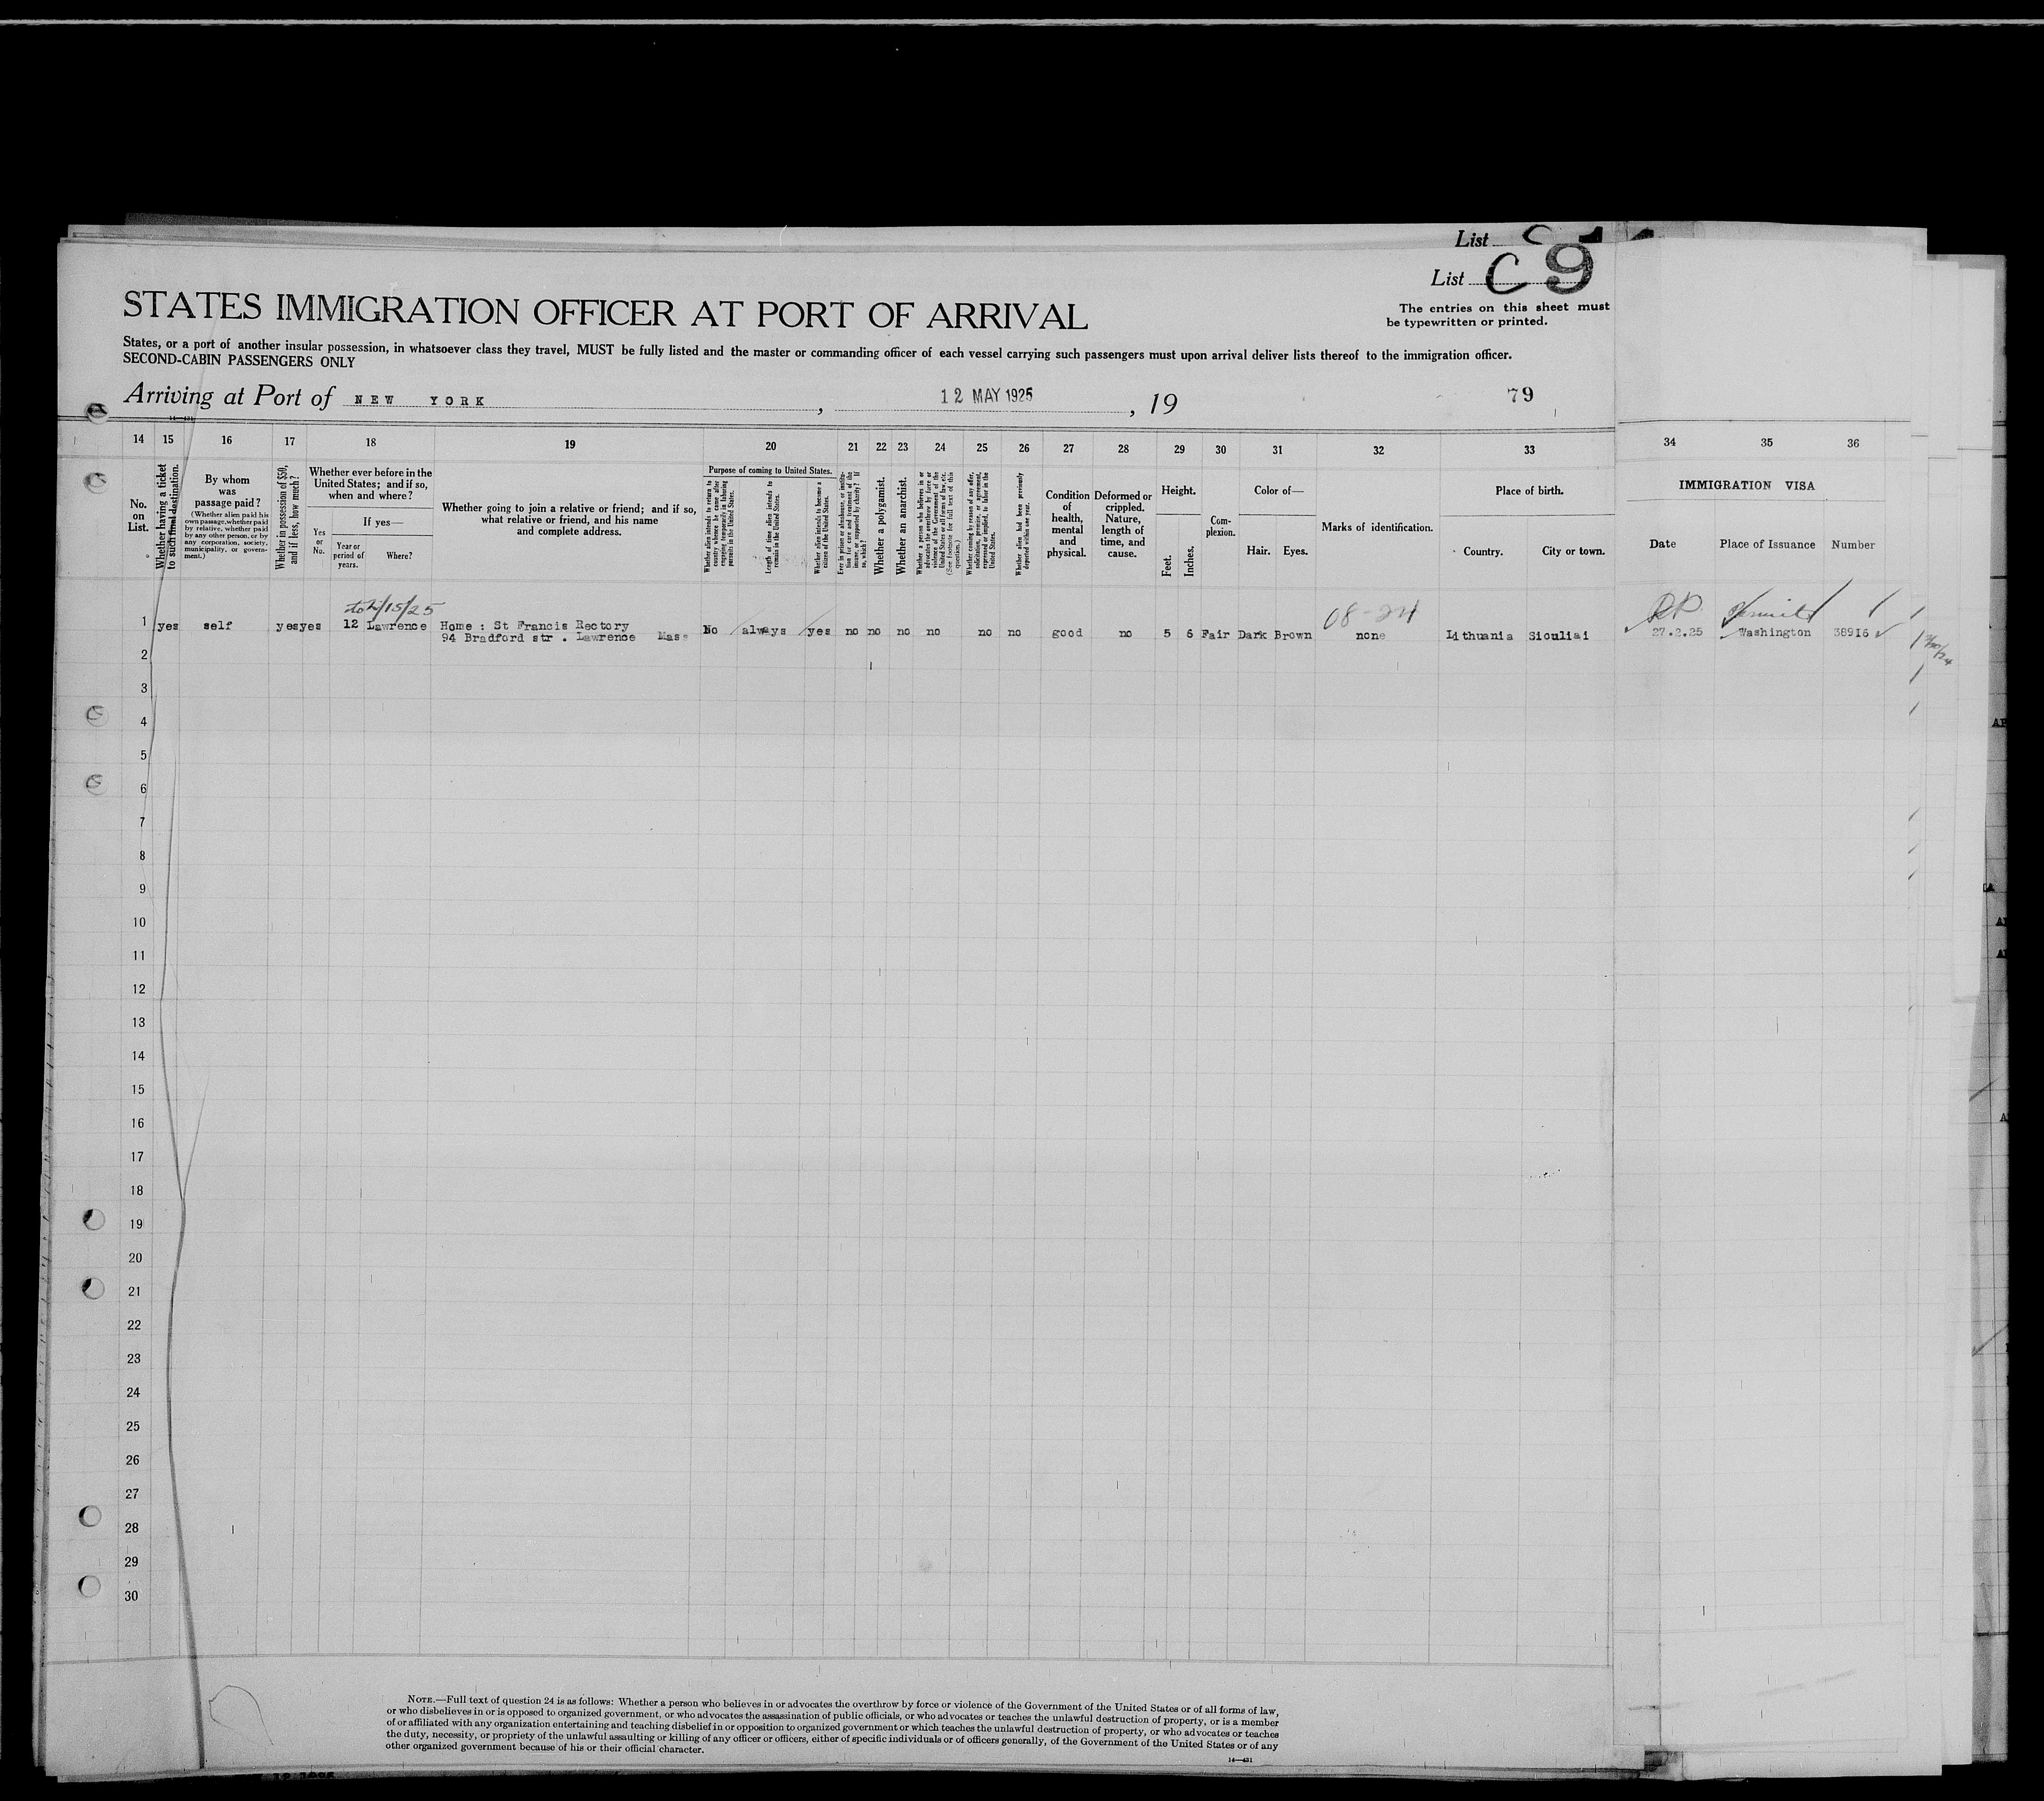 List
List C 9
The entries on this sheet must
be typewritten or printed.
STATES IMMIGRATION OFFICER AT PORT OF ARRIVAL
States, or a port of another insular possession, in whatsoever class they travel, MUST be fully listed and the master or commanding officer of each vessel carrying such passengers must upon arrival deliver lists thereof to the immigration officer.
SECOND-CABIN PASSENGERS ONLY
Arriving at Port of NEW YORK , 12 MAY 1925 , 19 79
14 15 16 17 18 19 20 21 22 23 24 25 26 27 28 29 30 31 32 33 34 35 36
No. on List.
Whether having a ticket to such final destination.
By whom was passage paid?
(Whether alien paid his own passage, whether paid by relative, whether paid by any other person, or by any corporation, society, municipality, or government.)
Whether in possession of $50, and if less, how much?
Whether ever before in the United States; and if so, when and where?
Yes or No.
If yes—
Year or period of years.
Where?
Whether going to join a relative or friend; and if so, what relative or friend, and his name and complete address.
Purpose of coming to United States.
Whether alien intends to return to country whence he came after engaging temporarily in laboring pursuits in the United States.
Length of time alien intends to remain in the United States.
Whether alien intends to become a citizen of the United States.
Ever in prison or almshouse, or institution for care and treatment of the insane, or supported by charity? If so, which?
Whether a polygamist.
Whether an anarchist.
Whether a person who believes in or advocates the overthrow by force or violence of the Government of the United States or all forms of law, etc. (See footnote for full text of this question.)
Whether coming by reason of any offer, solicitation, promise, or agreement, expressed or implied, to labor in the United States.
Whether alien had been previously deported within one year.
Condition of health, mental and physical.
Deformed or crippled. Nature, length of time, and cause.
Height.
Feet.
Inches.
Complexion.
Color of—
Hair.
Eyes.
Marks of identification.
Place of birth.
Country.
City or town.
IMMIGRATION VISA
Date
Place of Issuance
Number
to 2/15/25 08-24 RP Permit
1 yes self yes yes 12 Lawrence Home : St Francis Rectory No always yes no no no no no no good no 5 6 Fair Dark Brown none Lithuania Siouliai 27.2.25 Washington 38916
94 Bradford str . Lawrence Mass
2
3
4
5
6
7
8
9
10
11
12
13
14
15
16
17
18
19
20
21
22
23
24
25
26
27
28
29
30
NOTE.—Full text of question 24 is as follows: Whether a person who believes in or advocates the overthrow by force or violence of the Government of the United States or of all forms of law,
or who disbelieves in or is opposed to organized government, or who advocates the assassination of public officials, or who advocates or teaches the unlawful destruction of property, or is a member
of or affiliated with any organization entertaining and teaching disbelief in or opposition to organized government or which teaches the unlawful destruction of property, or who advocates or teaches
the duty, necessity, or propriety of the unlawful assaulting or killing of any officer or officers, either of specific individuals or of officers generally, of the Government of the United States or of any
other organized government because of his or their official character.
14—431